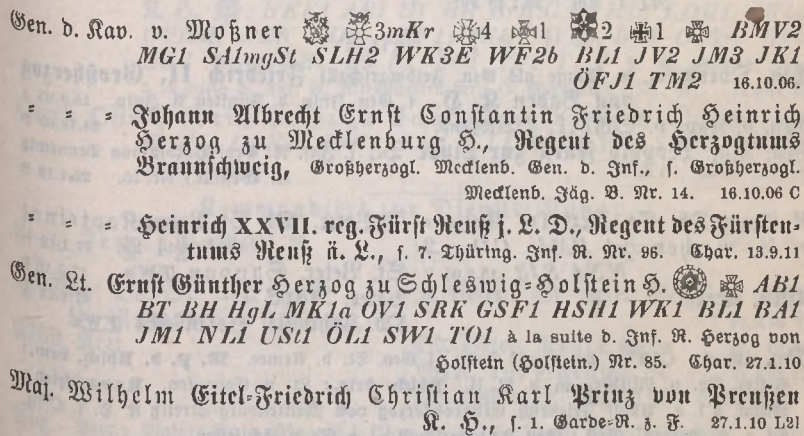 Gen. d. Kav. v. Moßner 3mKr 4 1 2 1 BMV2
MG1 SA1mgSt SLH2 WK3E WF2b BL1 JV2 JM3 JK1
ÖFJ1 TM2 16.10.06.
= = = Johann Albrecht Ernst Constantin Friedrich Heinrich
Herzog zu Mecklenburg H., Regent des Herzogtums
Braunschweig, Großherzogl. Mecklenb. Gen. d. Inf., s. Großherzogl.
Mecklenb. Jäg. B. Nr. 14. 16.10.06 C
= = = Heinrich XXVII. reg. Fürst Reuß j. L. D., Regent des Fürsten-
tums Reuß ä. L., s. 7. Thüring. Inf. R. Nr. 96. Char. 13.9.11
Gen. Lt. Ernst Günther Herzog zu Schleswig-Holstein H. AB1
BT BH HgL MK1a OV1 SRK GSF1 HSH1 WK1 BL1 BA1
JM1 NL1 USt1 ÖL1 SW1 TO1 à la suite d. Inf. R. Herzog von
Holstein (Holstein.) Nr. 85. Char. 27.1.10
Maj. Wilhelm Eitel-Friedrich Christian Karl Prinz von Preußen
K. H., s. 1. Garde-R. z. F. 27.1.10 L2l